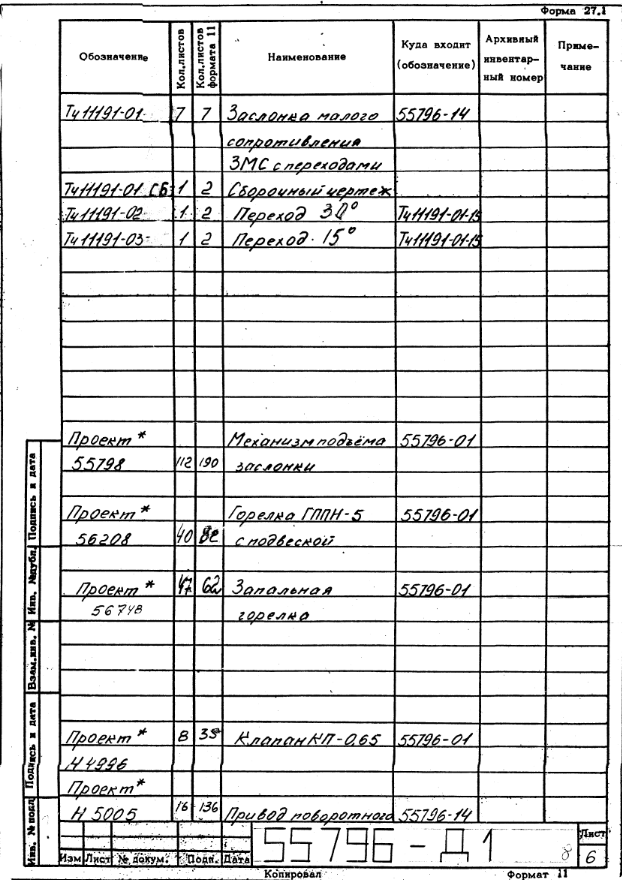 Форма 27.1
Обозначение Кол.листов Кол.листов формата 11 Наименование Куда входит (обозначение) Архивный инвентар-ный номер Приме-чание
Ту11191-01 7 7 Заслонка малого 55796-14
сопротивления
ЗМС с переходами
Ту11191-01 СБ 1 2 Сборочный чертеж
Ту11191-02 1 2 Переход 30° Ту11191-01-15
Ту11191-03 1 2 Переход 15° Ту11191-01-15
Проект * Механизм подъёма 55796-01
55798 112 190 заслонки
Проект * Горелка ГППН-5 55796-01
56208 40 с подвеской
Проект * 47 62 Запальная 55796-01
56748 горелка
Проект * 8 35 Клапан КП-0,65 55796-01
Н4996
Проект *
Н 5005 16 136 Привод поворотного 55796-14
Инв. № подл. Подпись и дата Взам.инв. № Инв. №дубл. Подпись и дата
55796-Д1
Лист
8 6
Изм Лист № докум. Подп. Дата
Копировал Формат 11